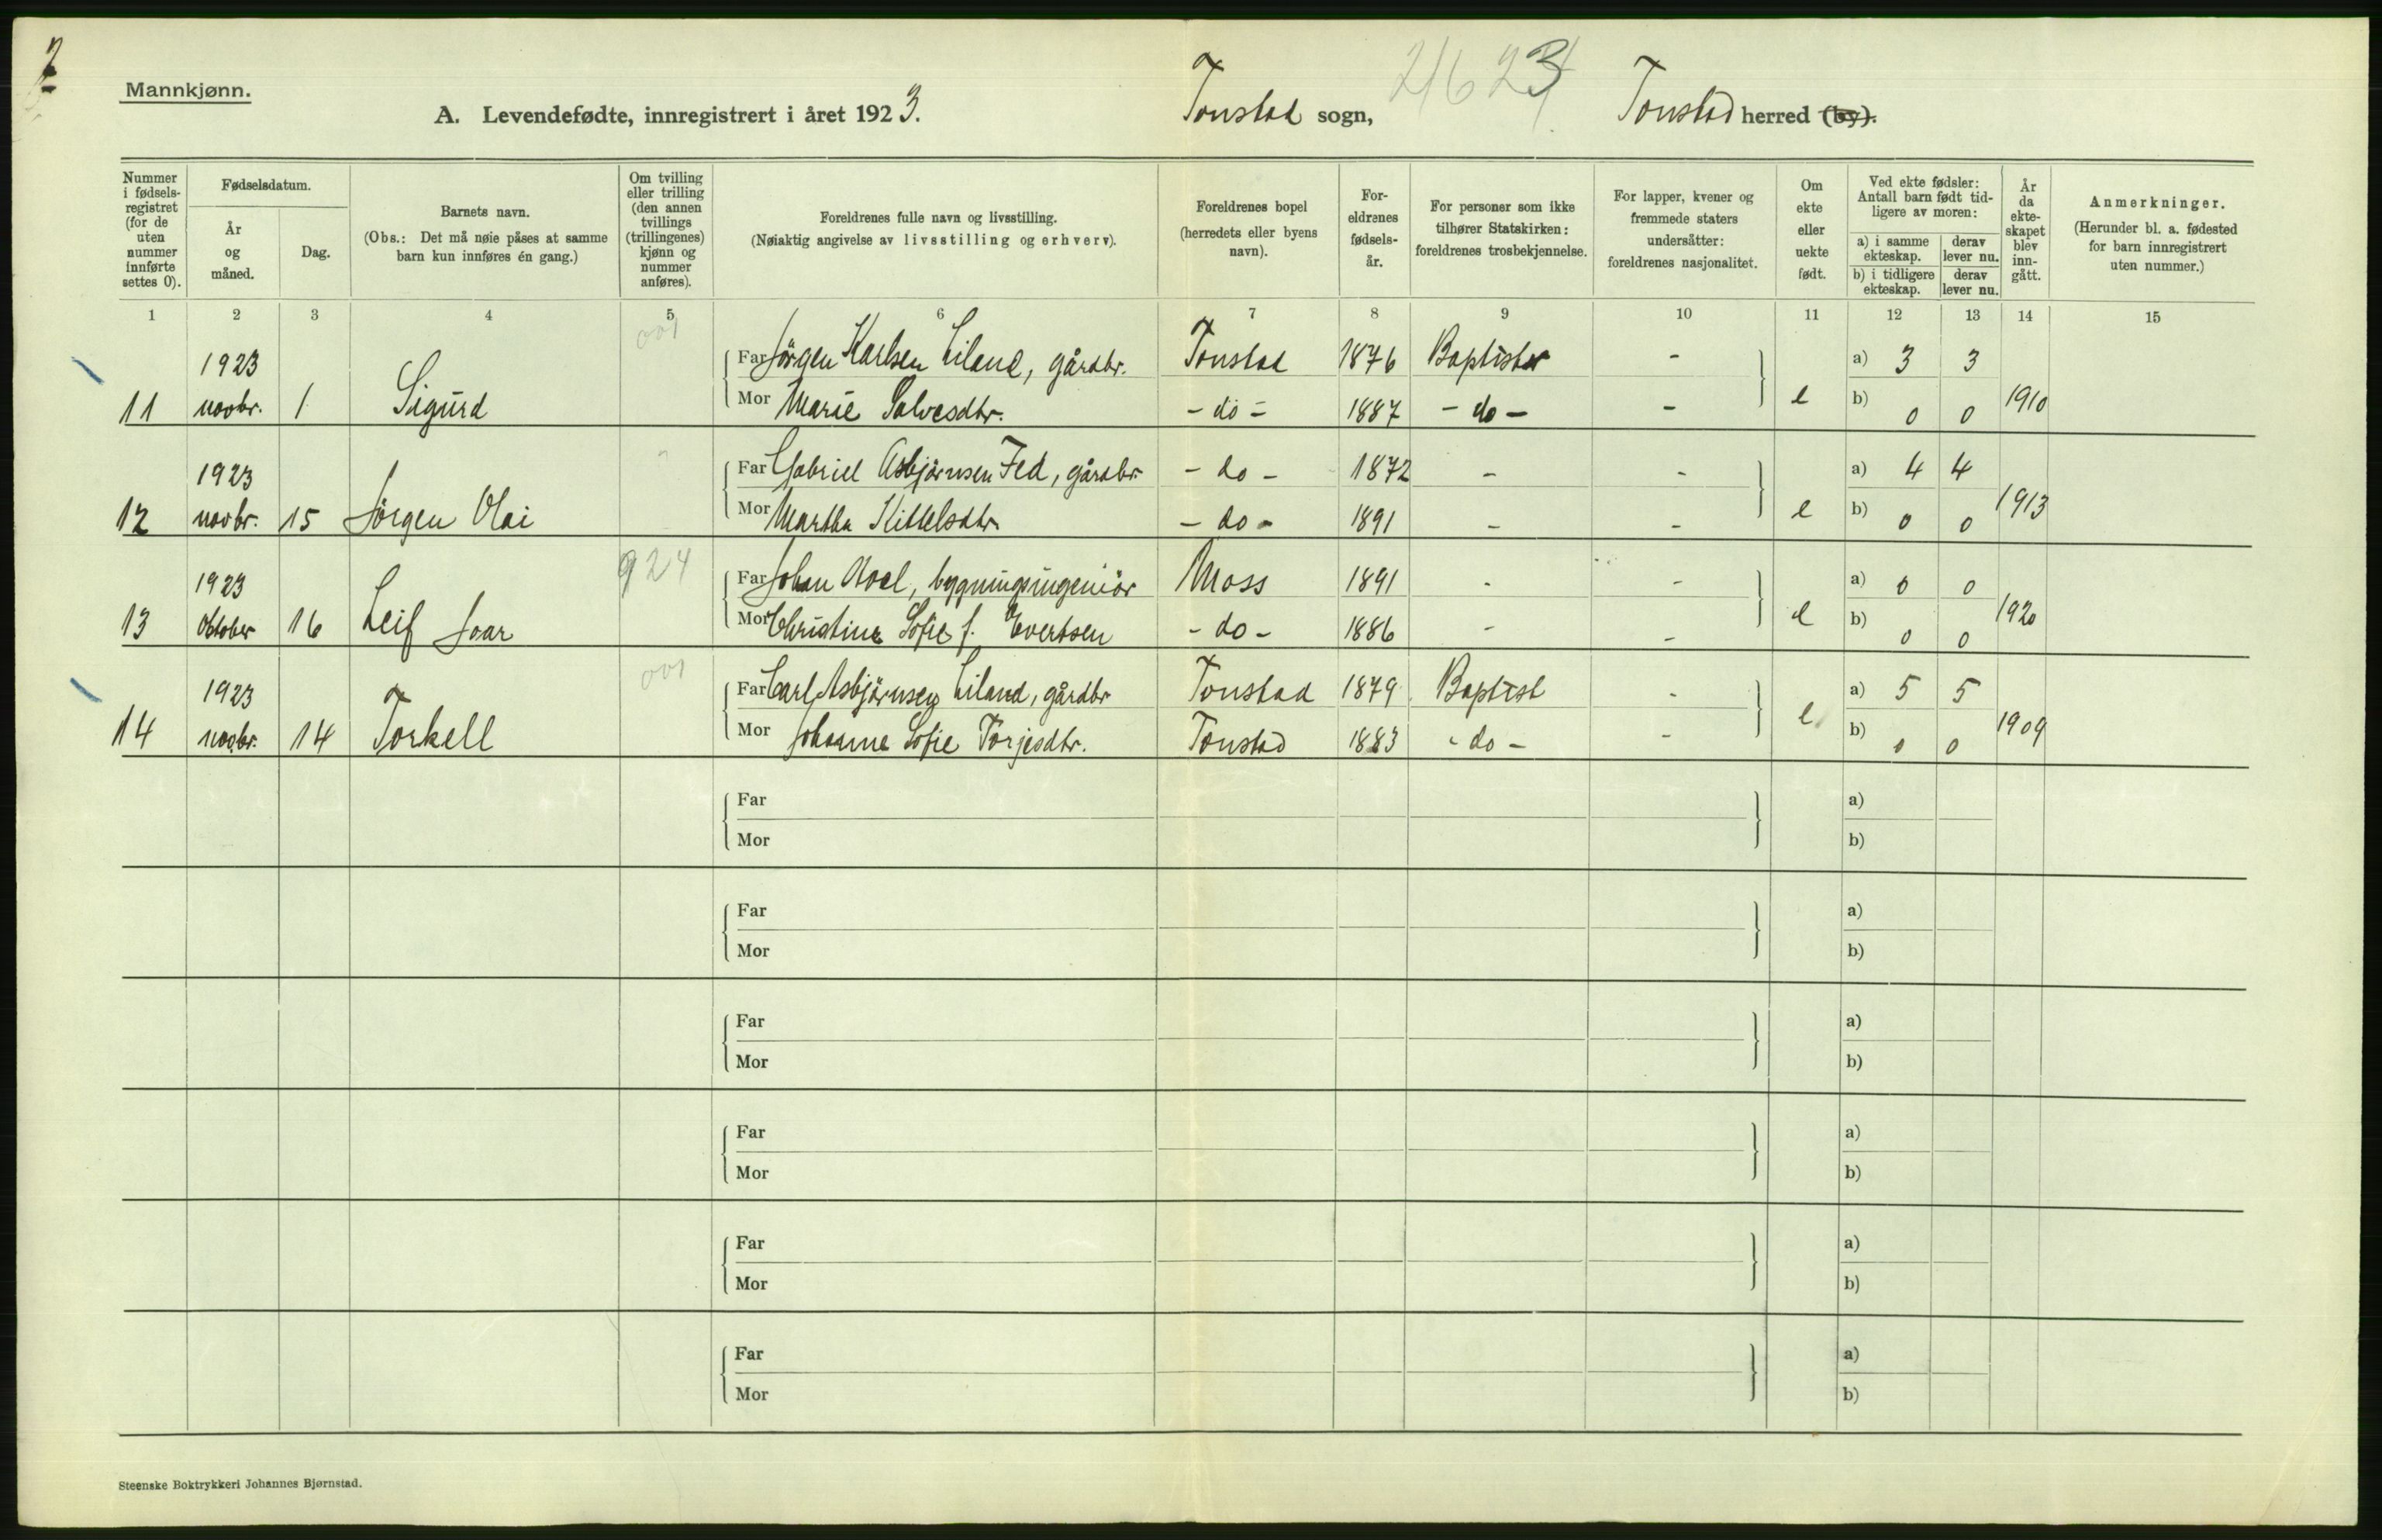 2
Mannkjønn.
A. Levendefødte, innregistrert i året 1923. Tonstad sogn, Tonstad herred (by).
Nummer i fødsels-registret (for de uten nummer innførte settes 0).
Fødselsdatum.
År og måned.
Dag.
Barnets navn.
(Obs.: Det må nøie påses at samme barn kun innføres én gang.)
Om tvilling eller trilling (den annen tvillings (trillingenes) kjønn og nummer anføres).
Foreldrenes fulle navn og livsstilling.
(Nøiaktig angivelse av livsstilling og erhverv).
Foreldrenes bopel (herredets eller byens navn).
For-eldrenes fødsels-år.
For personer som ikke tilhører Statskirken: foreldrenes trosbekjennelse.
For lapper, kvener og fremmede staters undersåtter: foreldrenes nasjonalitet.
Om ekte eller uekte født.
Ved ekte fødsler: Antall barn født tid-ligere av moren:
a) i samme ekteskap. derav lever nu.
b) i tidligere ekteskap. derav lever nu.
År da ekte-skapet blev inn-gått.
Anmerkninger.
(Herunder bl. a. fødested for barn innregistrert uten nummer.)
1 2 3 4 5 6 7 8 9 10 11 12 13 14 15
001
1923 Far Jörgen Karlsen Liland, gårdbr. Tonstad 1876 Baptister - a) 3 3
11 novbr. 1 Sigurd Mor Marie Salvesdtr. - do - 1887 - do - - e b) 0 0 1910
1923 Far Gabriel Asbjörnsen Fed, gårdbr. - do - 1872 - - a) 4 4
12 novbr. 15 Jörgen Olai Mor Martha Kittelsdtr. - do - 1891 - - e b) 0 0 1913
924
1923 Far Johan , bygningsingeniör Moss 1891 - - a) 0 0
13 Oktober 16 Leif Mor Christine Sofie f. Evertsen - do - 1886 - - e b) 0 0 1920
001
1923 Far Carl Asbjörnsen Liland, gårdbr Tonstad 1879 Baptist - a) 5 5
14 novbr. 14 Torkell Mor Johanne Sofie Torjesdtr. Tonstad 1883 - do - - e b) 0 0 1909
Far a)
Mor b)
Far a)
Mor b)
Far a)
Mor b)
Far a)
Mor b)
Far a)
Mor b)
Far a)
Mor b)
Steenske Boktrykkeri Johannes Bjørnstad.